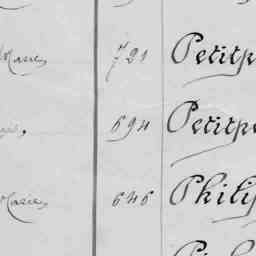 Marie 721 Petitp
694 Petitp
Marie 646 Philip